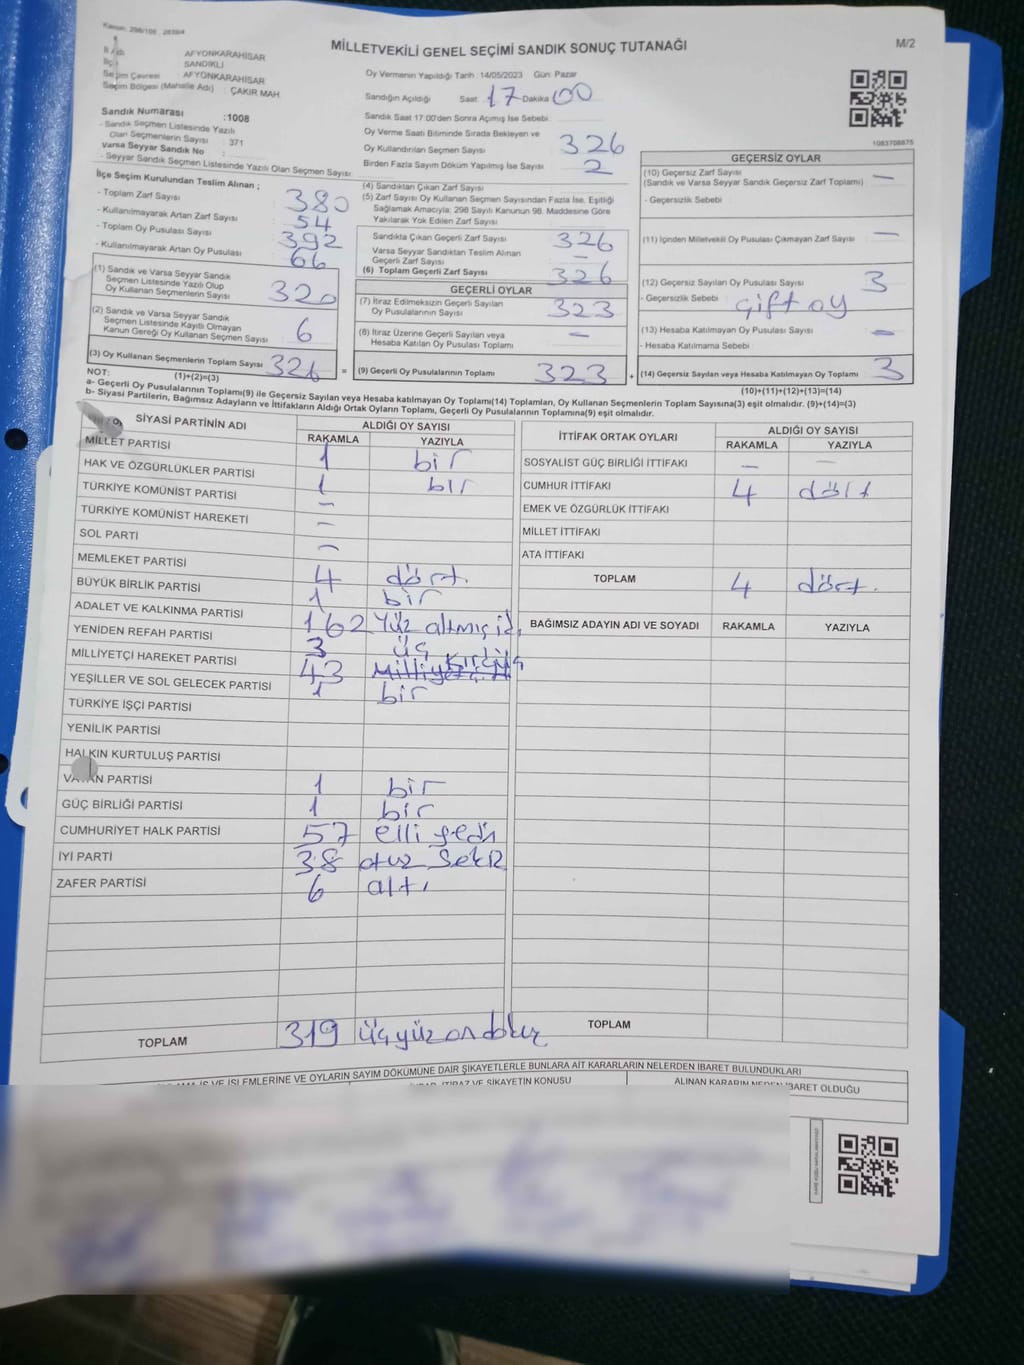 Kanun: 298/105, 2839/4
MİLLETVEKİLİ GENEL SEÇİMİ SANDIK SONUÇ TUTANAĞI
M/2
AFYONKARAHİSAR
SANDIKLI
Seçim Çevresi : AFYONKARAHİSAR
Seçim Bölgesi (Mahalle Adı) : ÇAKIR MAH
Sandık Numarası :1008
- Sandık Seçmen Listesinde Yazılı
Olan Seçmenlerin Sayısı : 371
Varsa Seyyar Sandık No :
- Seyyar Sandık Seçmen Listesinde Yazılı Olan Seçmen Sayısı:
Oy Vermenin Yapıldığı Tarih :14/05/2023 Gün Pazar
Sandığın Açıldığı Saat: 17 Dakika 00
Sandık Saat 17:00'den Sonra Açımış İse Sebebi
Oy Verme Saati Bitiminde Sırada Bekleyen ve
Oy Kullandırılan Seçmen Sayısı 326
Birden Fazla Sayım Döküm Yapılmış İse Sayısı 2
1083708875
İlçe Seçim Kurulundan Teslim Alınan ;
- Toplam Zarf Sayısı 380
- Kullanılmayarak Artan Zarf Sayısı 54
- Toplam Oy Pusulası Sayısı 392
- Kullanılmayarak Artan Oy Pusulası 66
(1) Sandık ve Varsa Seyyar Sandık
Seçmen Listesinde Yazılı Olup
Oy Kullanan Seçmenlerin Sayısı 320
(2) Sandık ve Varsa Seyyar Sandık
Seçmen Listesinde Kayıtlı Olmayan
Kanun Gereği Oy Kullanan Seçmen Sayısı 6
(3) Oy Kullanan Seçmenlerin Toplam Sayısı 326 =
(1)+(2)=(3)
(4) Sandıktan Çıkan Zarf Sayısı
(5) Zarf Sayısı Oy Kullanan Seçmen Sayısından Fazla İse, Eşitliği
Sağlamak Amacıyla; 298 Sayılı Kanunun 98. Maddesine Göre
Yakılarak Yok Edilen Zarf Sayısı
Sandıkta Çıkan Geçerli Zarf Sayısı 326
Varsa Seyyar Sandıktan Teslim Alınan
Geçerli Zarf Sayısı –
(6) Toplam Geçerli Zarf Sayısı 326
GEÇERLİ OYLAR
(7) İtiraz Edilmeksizin Geçerli Sayılan
Oy Pusulalarının Sayısı 323
(8) İtiraz Üzerine Geçerli Sayılan veya
Hesaba Katılan Oy Pusulası Toplamı –
(9) Geçerli Oy Pusulalarının Toplamı 323 +
GEÇERSİZ OYLAR
(10) Geçersiz Zarf Sayısı –
(Sandık ve Varsa Seyyar Sandık Geçersiz Zarf Toplamı)
- Geçersizlik Sebebi
(11) İçinden Milletvekili Oy Pusulası Çıkmayan Zarf Sayısı –
(12) Geçersiz Sayılan Oy Pusulası Sayısı 3
- Geçersizlik Sebebi : çift oy
(13) Hesaba Katılmayan Oy Pusulası Sayısı –
- Hesaba Katılmama Sebebi :
(14) Geçersiz Sayılan veya Hesaba Katılmayan Oy Toplamı 3
(10)+(11)+(12)+(13)=(14)
NOT:
a- Geçerli Oy Pusulalarının Toplamı(9) ile Geçersiz Sayılan veya Hesaba Katılmayan Oy Toplamı(14) Toplamları, Oy Kullanan Seçmenlerin Toplam Sayısına(3) eşit olmalıdır. (9)+(14)=(3)
b- Siyasi Partilerin, Bağımsız Adayların ve İttifakların Aldığı Ortak Oyların Toplamı, Geçerli Oy Pusulalarının Toplamına(9) eşit olmalıdır.
SİYASİ PARTİNİN ADI ALDIĞI OY SAYISI
RAKAMLA YAZIYLA
MİLLET PARTİSİ 1 bir
HAK VE ÖZGÜRLÜKLER PARTİSİ 1 bir
TÜRKİYE KOMÜNİST PARTİSİ –
TÜRKİYE KOMÜNİST HAREKETİ –
SOL PARTİ –
MEMLEKET PARTİSİ 4 dört.
BÜYÜK BİRLİK PARTİSİ 1 bir
ADALET VE KALKINMA PARTİSİ 162 Yüz altmış iki
YENİDEN REFAH PARTİSİ 3 üç
MİLLİYETÇİ HAREKET PARTİSİ 43 kırküç
YEŞİLLER VE SOL GELECEK PARTİSİ 1 bir
TÜRKİYE İŞÇİ PARTİSİ
YENİLİK PARTİSİ
HALKIN KURTULUŞ PARTİSİ
VATAN PARTİSİ 1 bir
GÜÇ BİRLİĞİ PARTİSİ 1 bir
CUMHURİYET HALK PARTİSİ 57 elli yedi
İYİ PARTİ 38 otuz Sekiz
ZAFER PARTİSİ 6 altı
TOPLAM 319 üçyüzondokuz
İTTİFAK ORTAK OYLARI ALDIĞI OY SAYISI
RAKAMLA YAZIYLA
SOSYALİST GÜÇ BİRLİĞİ İTTİFAKI – –
CUMHUR İTTİFAKI 4 dört
EMEK VE ÖZGÜRLÜK İTTİFAKI
MİLLET İTTİFAKI
ATA İTTİFAKI
TOPLAM 4 dört.
BAĞIMSIZ ADAYIN ADI VE SOYADI RAKAMLA YAZIYLA
TOPLAM
İŞLEMLERİNE VE OYLARIN SAYIM DÖKÜMÜNE DAİR ŞİKAYETLERLE BUNLARA AİT KARARLARIN NELERDEN İBARET BULUNDUKLARI
İTİRAZ VE ŞİKAYETİN KONUSU ALINAN KARARIN NEDEN İBARET OLDUĞU